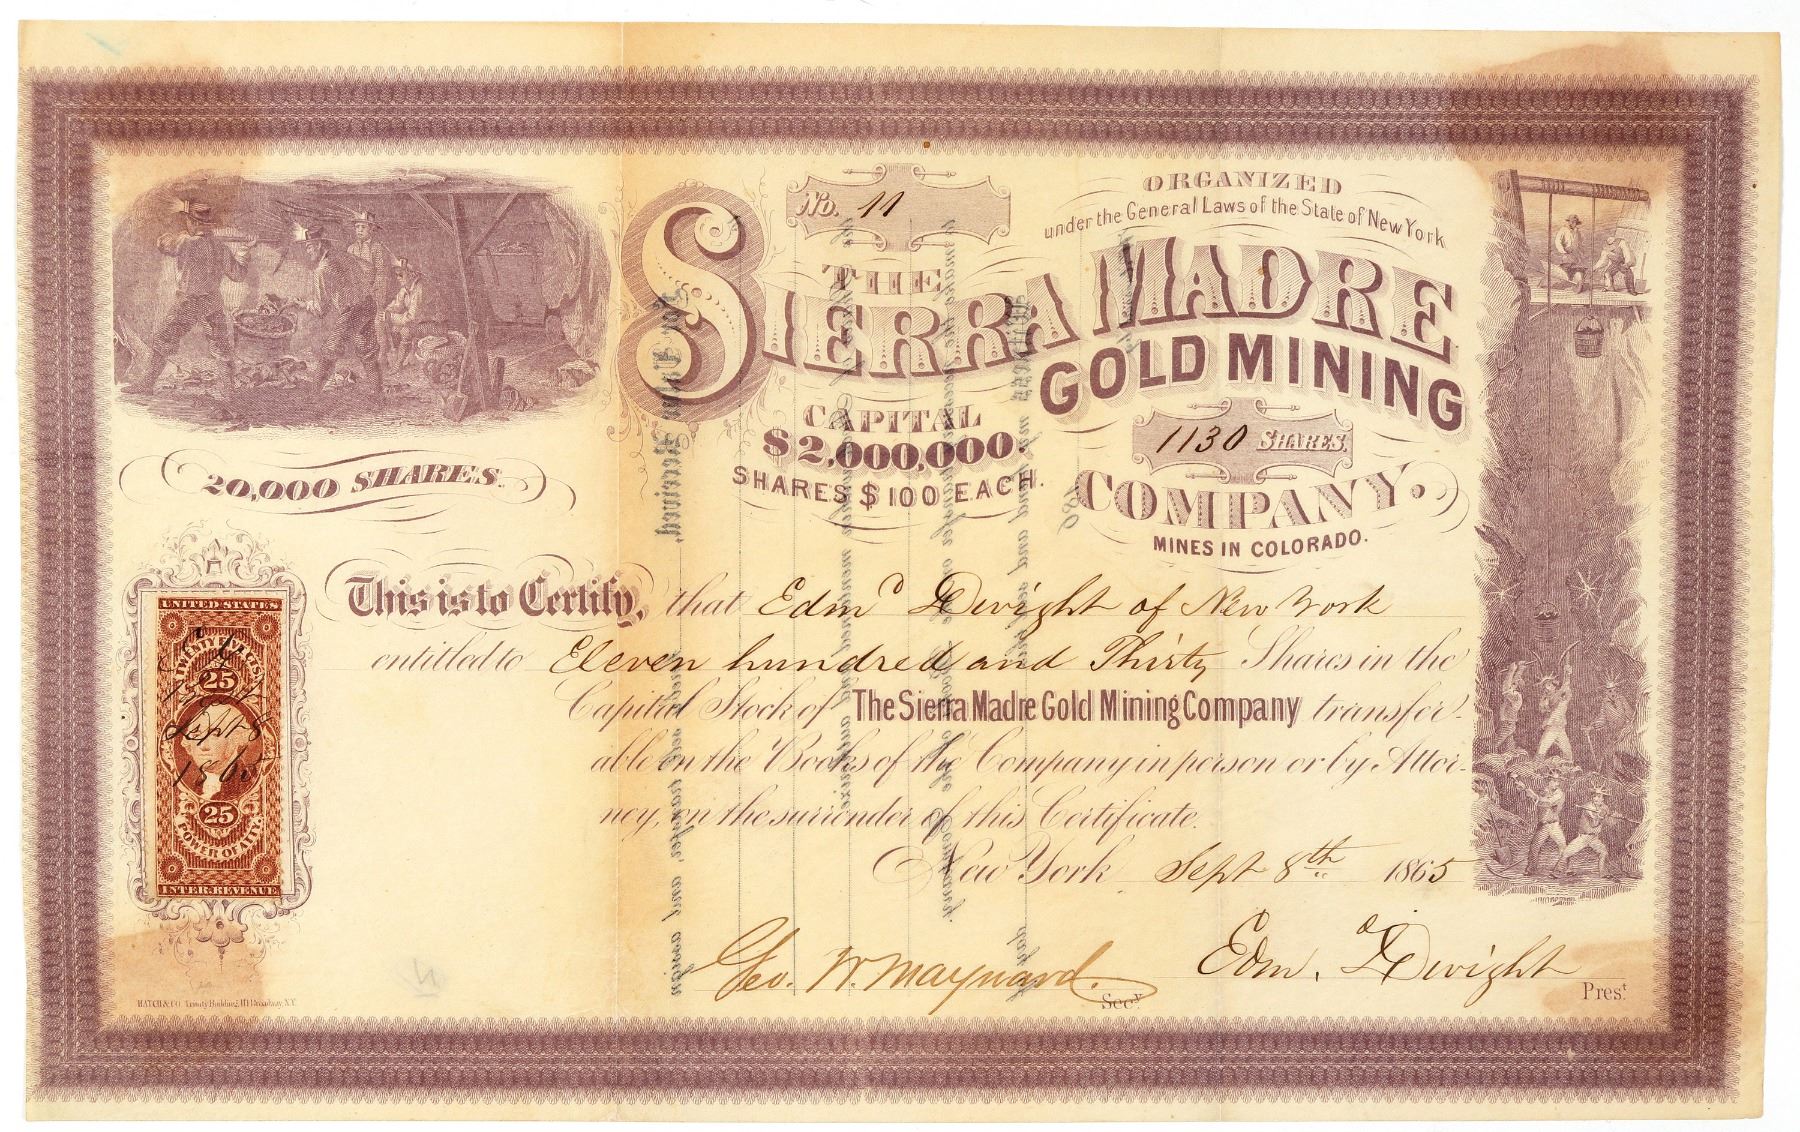 No. 11
ORGANIZED
under the General Laws of the State of New York
THE
SIERRA MADRE
GOLD MINING
CAPITAL
$2,000,000.
SHARES $100 EACH.
1130 SHARES.
COMPANY.
MINES IN COLORADO.
20,000 SHARES.
This is to Certify, that Edmd Dwight of New York
entitled to Eleven hundred and Thirty Shares in the
Capital Stock of The Sierra Madre Gold Mining Company transfer-
able on the Books of the Company in person or by Attor-
ney, on the surrender of this Certificate.
New York Sept 8th 1865
Geo. W. Maynard. Secy.
Edmd. Dwight Prest.
UNITED STATES
TWENTY FIVE CTS.
25
Sept 8
1865
25
POWER OF ATTY.
INTER. REVENUE
HATCH & CO. Trinity Building, 111 Broadway, N.Y.
11
For Value Received,